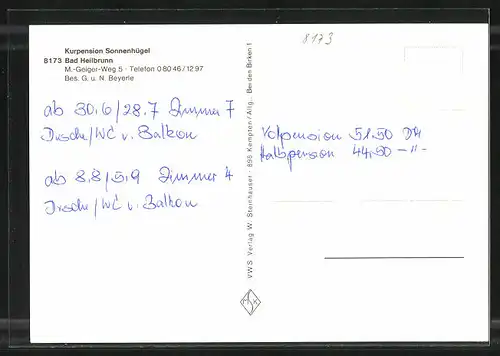 Kurpension Sonnenhügel
8173 Bad Heilbrunn
M.-Geiger-Weg 5 - Telefon 0 80 46 / 12 97
Bes. G. u. N. Beyerle
8173
ab 30.6/28.7 Zimmer 7
Dusche/WC u. Balkon
ab 8.8/5.9 Zimmer 4
Dusche/WC u. Balkon
VWS Verlag W. Steinhauser · 896 Kempten/Allg. Bei den Birken 1
Volpension 51.50 DM
Halbpension 44.50 -"-
S
H K